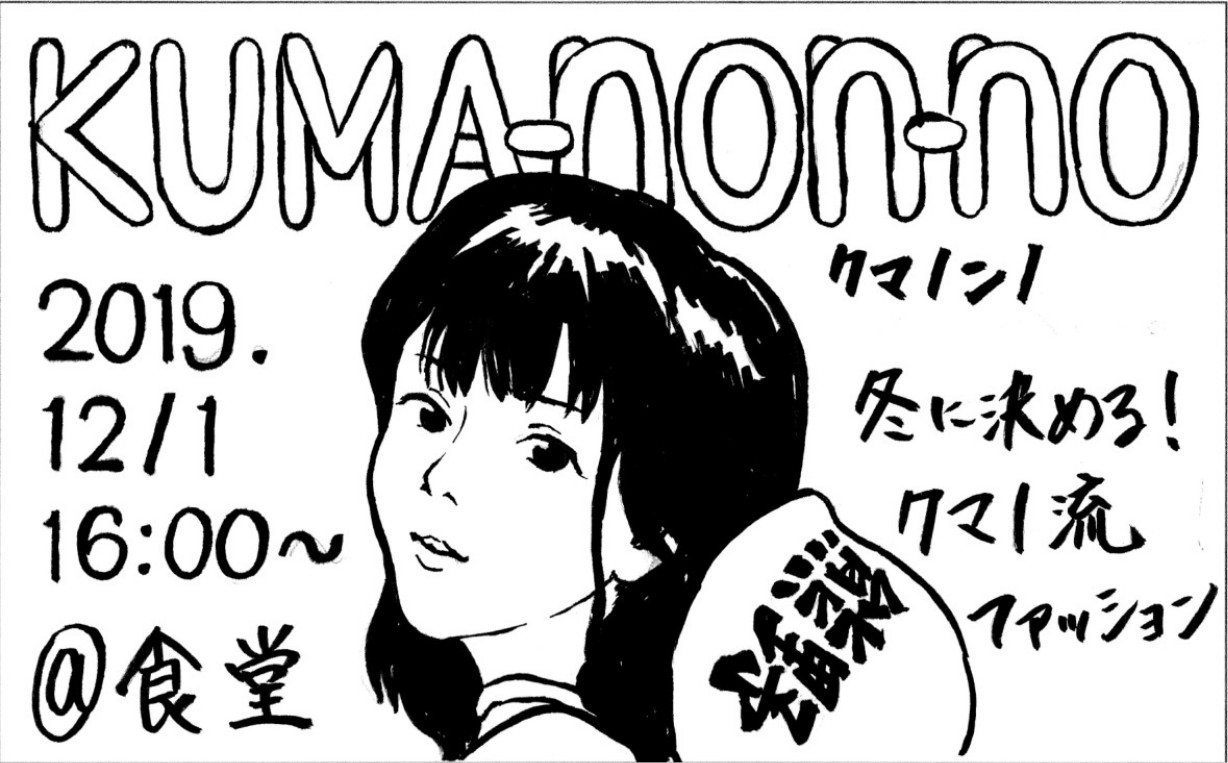 KUMA-non-no
クマノンノ
2019.
12/1
16:00〜
@食堂
冬に決める!
クマノ流
ファッション